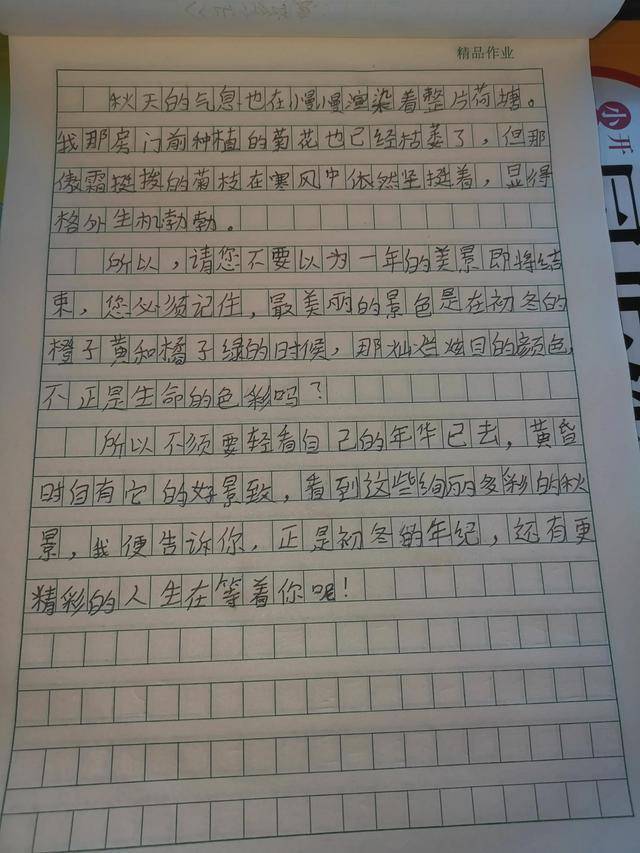 精品作业
秋天的气息也在慢慢渲染着整片荷塘。
我那房门前种植的菊花也已经枯萎了，但那
傲霜挺拨的菊枝在寒风中依然坚挺着，显得
格外生机勃勃。
所以，请您不要以为一年的美景即将结
束，您必须记住，最美丽的景色是在初冬的
橙子黄和橘子绿的时候，那灿烂炫目的颜色，
不正是生命的色彩吗？
所以不须要轻看自己的年华已去，黄昏
时自有它的好景致，看到这些绚丽多彩的秋
景，我便告诉你，正是初冬的年纪，还有更
精彩的人生在等着你呢！
小开